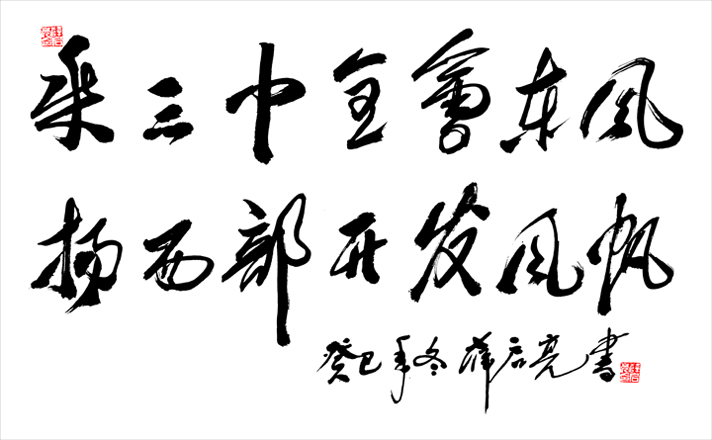 乘三中全會东风
扬西部开发风帆
癸巳年冬薛后亮書